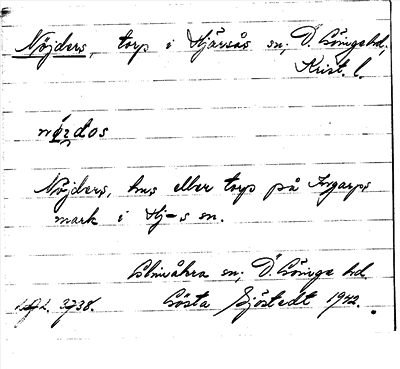 Nöjders, torp i Hjärsås sn, Ö. Göinge hd,
Krist. l.
Nöjders, hus eller torp på Ingarps
mark i Hj-s sn.
Glimåkra sn, Ö. Göinge hd.
Gösta Sjöstedt 1942.
3738.